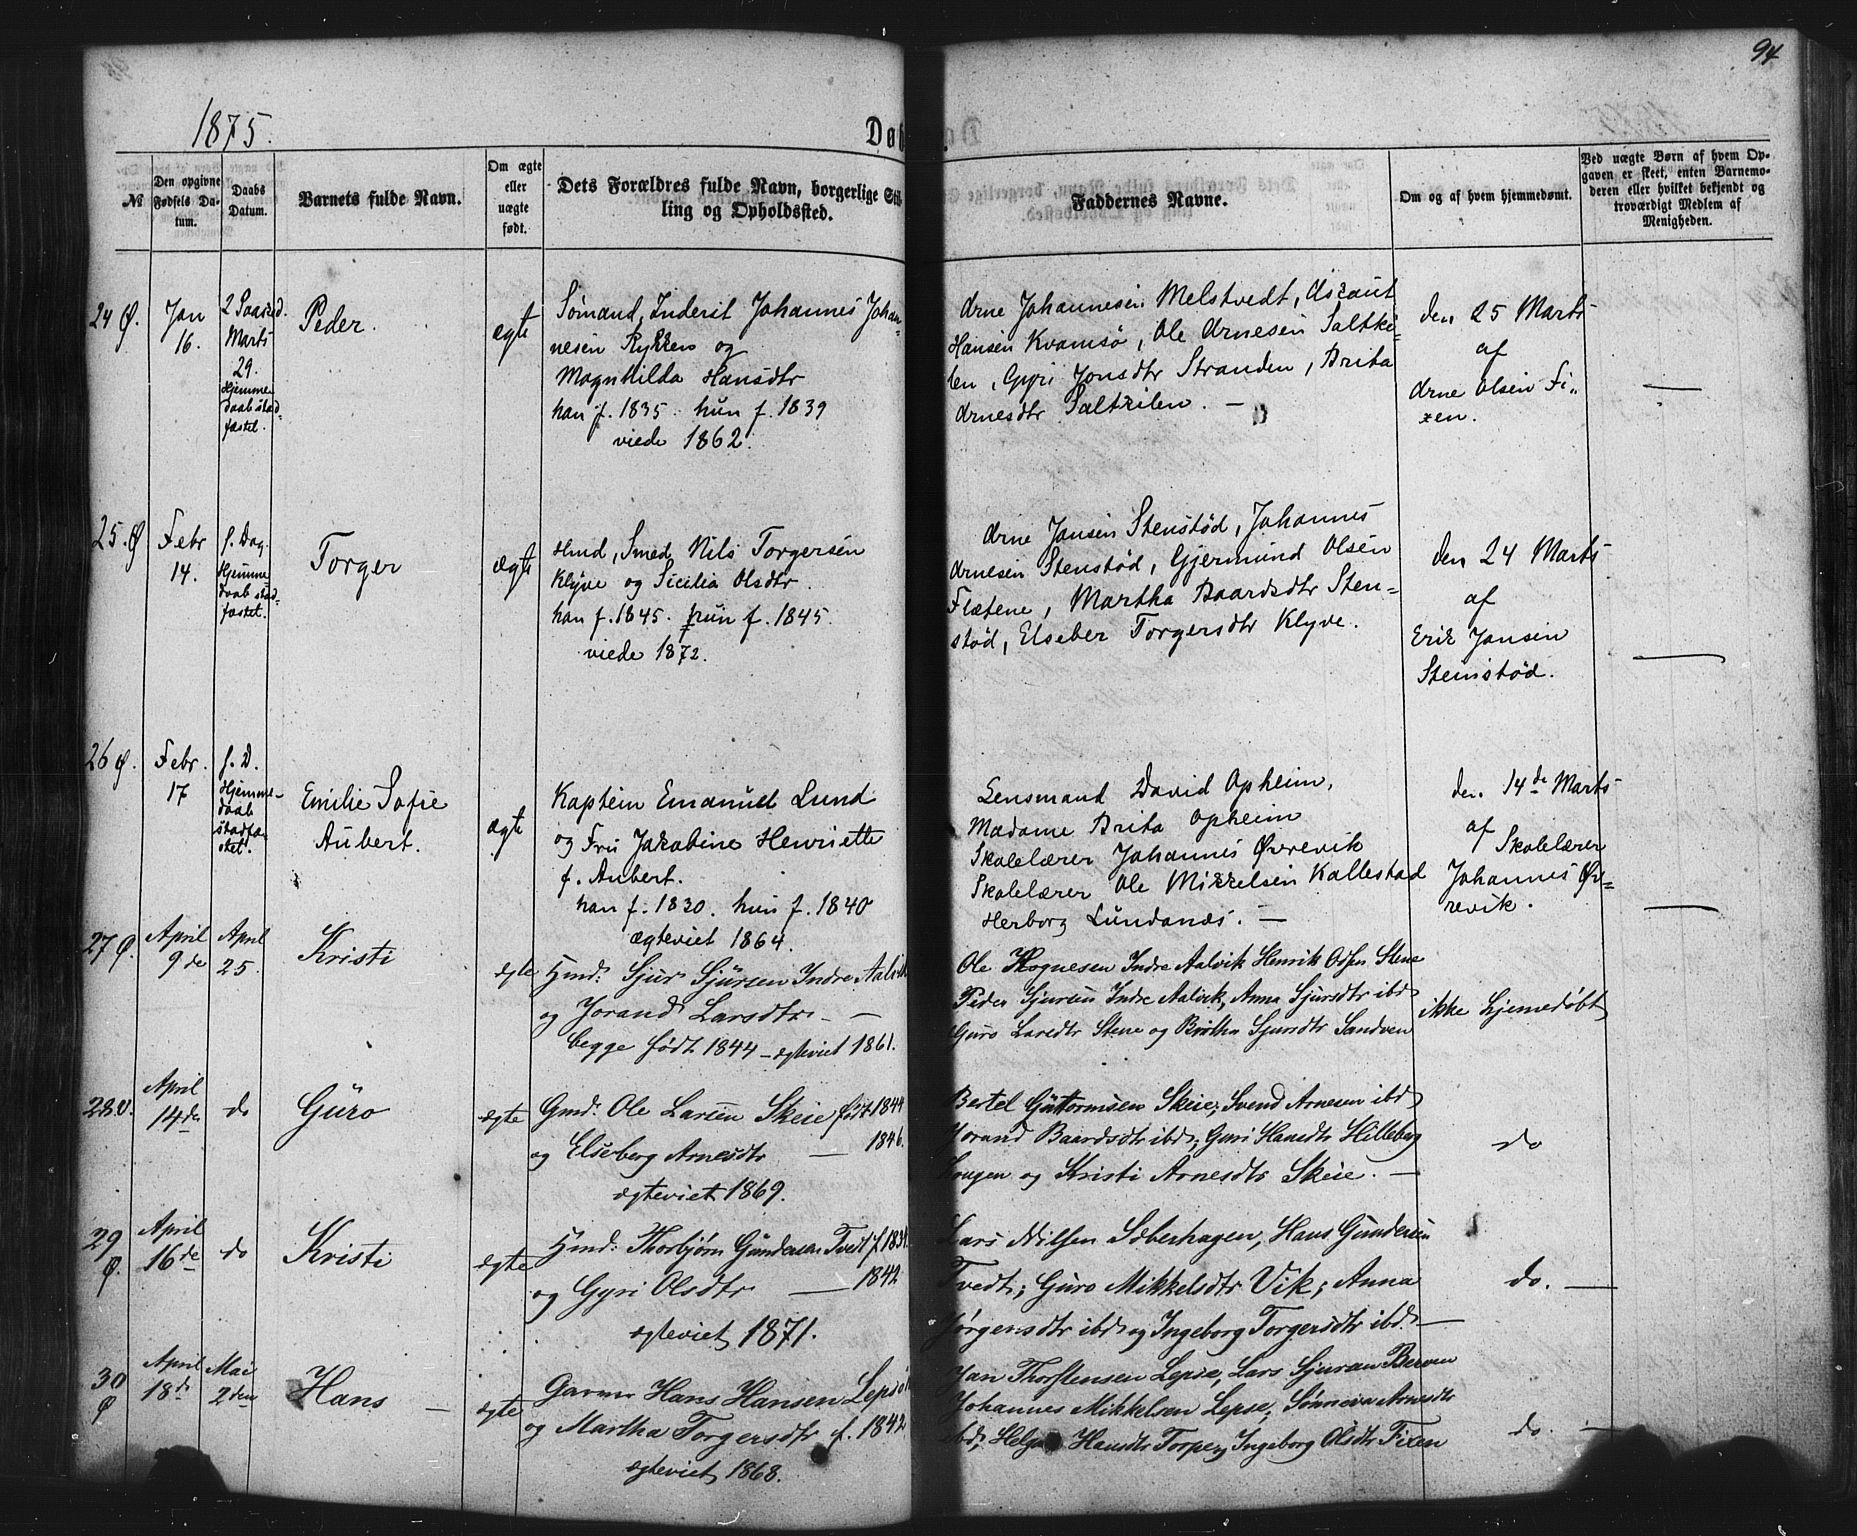 94
1875.
Daab
№
Den opgivne Fødsels Datum.
Daabs Datum.
Barnets fulde Navn.
Om ægte eller uægte født.
Dets Forældres fulde Navn, borgerlige Stilling og Opholdssted.
Faddernes Navne.
Om og af hvem hjemmedøbt.
Ved uægte Børn af hvem Opgaven er skeet, enten Barnemoderen eller hvilket bekjendt og troværdigt Medlem af Menigheden.
24 Ø.
Jan
16.
2 Paaskd.
Marts
29.
Hjemme
daab stad=
fæstet.
Peder.
ægte
Sømand, Inderst Johannes Johan=
nesen Rykken og
Magnhilda Hansdtr
han f. 1835. hun f. 1839
viede 1862.
Arne Johannesen Melstvedt, Asraut
Hansen Kvamsø, Ole Arnesen Saltki=
len, Gyri Jonsdtr Stranden, Brita
Arnesdtr Saltkilen. —
den 25 Marts
af
Arne Olsen Fi=
xen.
—
25. Ø
Febr
14.
s. Dag.
Hjemme
daab stad=
fæstet.
Torger
ægte
Hmd, Smed Nils Torgersen
Klyve og Sicilia Olsdtr.
han f. 1845. hun f. 1845.
viede 1872.
Arne Jansen Stenstød, Johannes
Arnesen Stenstød, Gjermund Olsen
Flætene, Martha Baardsdtr Sten=
stød, Elseber Torgersdtr Klyve.
den 24 Marts
af
Erik Jansen
Stenstød.
—
26 Ø.
Febr.
17
s. D.
Hjemme=
daab
stadfæ
stet.
Emilie Sofie
Aubert.
ægte
Kaptein Emanuel Lund
og Fru Jakobine Henriette
f. Aubert.
han f. 1830. hun f. 1840
ægteviet 1864.
Lensmand David Opheim,
Madame Brita Opheim
Skolelærer Johannes Øvrevik
Skolelærer Ole Mikkelsen Kallestad
Herborg Lundanæs. —
den 14de Marts
af Skolelærer
Johannes Øv=
revik.
—
27 Ø.
April
9de
April
25.
Kristi
ægte
Hmd. Sjur Sjursen Indre Aalvik
og Jorand Larsdtr — —
begge født 1844 — ægteviet 1861.
Ole Hognesen Indre Aalvik Henrik Odsen Stene
Peder Sjursen Indre Aalvik, Anna Sjursdtr ibd
Guro Larsdtr Stene og Britha Sjursdtr Sandven
ikke hjemedøbt
28 Ø.
April
14de
do
Guro
ægte
Gmd. Ole Larsen Skeie født 1844
og Elseberg Arnesdtr — 1846.
ægteviet 1869.
Bertel Guttormsen Skeie, Svend Arnesen ibd
Jorand Baardsdtr ibd; Guri Hansdtr Hilleberg
Hougen og Kristi Arnesdtr Skeie. —
do
29
Ø.
April
16de
do
Kristi
ægte
Hmd. Thorbjørn Gundersen Tveit f. 1831.
og Gyri Olsdtr — 1842
ægteviet 1871.
Lars Nilsen Soberhagen, Hans Gundersen
Tvedt; Guro Mikkelsdtr Vik; Anna
Jørgensdtr ibd og Ingeborg Torgersdtr ibd. —
do. —
30
Ø
April
18de
Mai
2den
Hans —
ægte
Hans Hansen Lepsø
og Martha Torgersdtr f. 1842
ægteviet 1868.
Jan Thorstensen Lepsø, Lars Sjursen Berven
Johannes Mikkelsen Lepsø, Sønneva Arnesdtr
ibd, Helga Hansdtr Torpe, Ingeborg Olsdtr Fixen
do. —